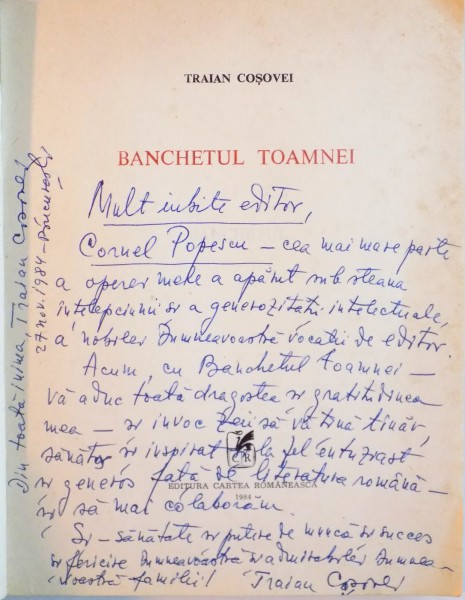 TRAIAN COȘOVEI
BANCHETUL TOAMNEI
Mult iubite editor,
Cornel Popescu – cea mai mare parte
a operei mele a apărut sub steaua
înțelepciunii și a generozității intelectuale,
a nobilei Dumneavoastră vocații de editor.
Acum, cu Banchetul Toamnei –
vă aduc toată dragostea și gratitudinea
mea – și invoc Zeii să vă țină tînăr,
sănătos și inspirat și la fel entuziast
și generos față de literatura română –
EDITURA CARTEA ROMÂNEASCĂ
1984
și să mai colaborăm.
Și – sănătate și putere de muncă și succes
și fericire Dumneavoastră și admirabilei Dumnea-
voastră familii! Traian Coșovei
Din toată inima, Traian Coșovei
27 nov. 1984 – București